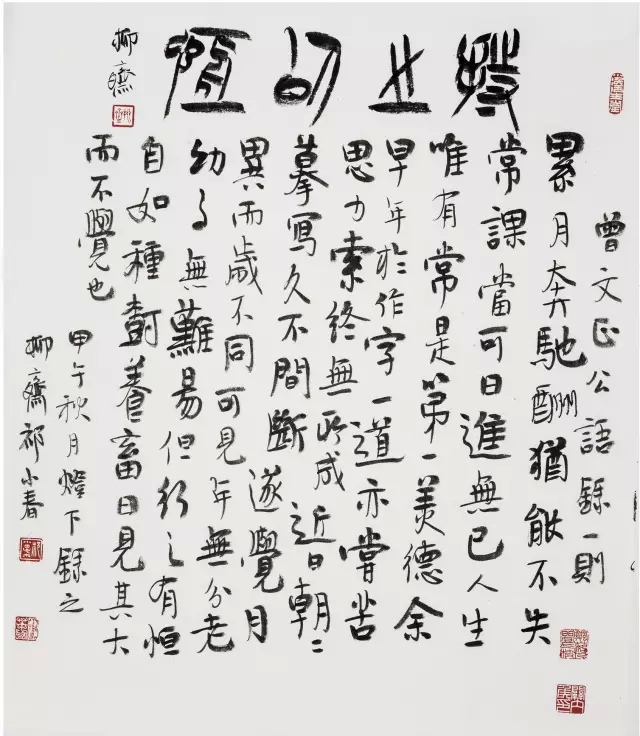 持之以恆
柳齋
曾文正公語錄一則
累月奔馳酬猶能不失
常課當可日進無已人生
唯有常是第一美德余
早年於作字一道亦嘗苦
思力索終無所成近日朝〻
摹寫久不間斷遂覺月
異而歲不同可見年無分老
幼事無難易但行之有恒
自如種樹養畜日見其大
而不覺也
甲午秋月燈下錄之
柳齋祁小春